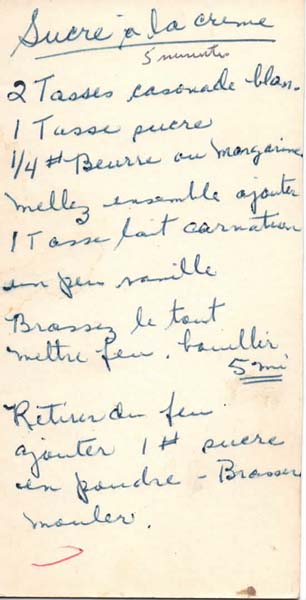 Sucre à la creme
5 minutes
2 Tasses casonade blan.
1 Tasse sucre
1/4 # Beurre ou margarine
mellez ensemble ajouter
1 Tasse lait carnation
un peu vanille
Brassez le tout
mettre feu, bouillir
5 mi
Retirer du feu
ajouter 1 # sucre
en poudre - Brasser
mouler.